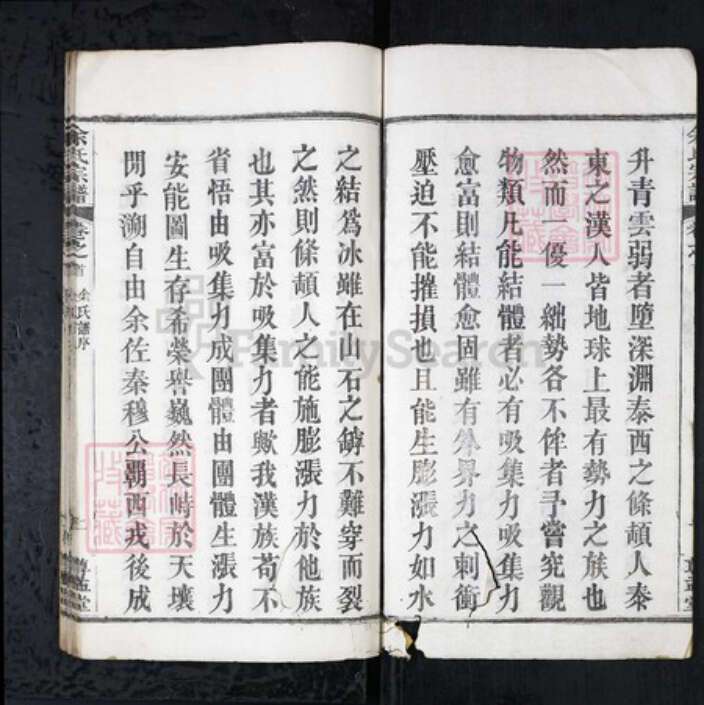 升青雲弱者墮深淵泰西之條頡人泰
東之漢人皆地球上最有勢力之族也
然而一優一絀勢各不侔者予嘗究觀
物類凡能結體者必有吸集力吸集力
愈富則結體愈固雖有外界力之刺衝
壓迫不能摧損也且能生膨漲力如水
之結爲冰雖在山石之罅不難穿而裂
之然則條頡人之能施膨漲力於他族
也其亦富於吸集力者歟我漢族苟不
省悟由吸集力成團體由團體生漲力
安能圖生存希榮譽巍然長峙於天壤
間乎溯自由余佐秦穆公霸西戎後成
余氏宗譜
卷之首
余氏譜序
FamilySearch